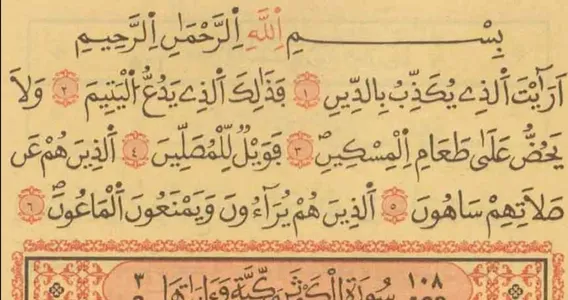 بِسْمِ اِ۬للَّهِ اِ۬لرَّحْمَٰنِ اِ۬لرَّحِيمِ
أَرَٰيْتَ اَ۬لذِے يُكَذِّبُ بِالدِّينِ ١ فَذَٰلِكَ اَ۬لذِے يَدُعُّ اُ۬لْيَتِيمَ ٢ وَلَا
يَحُضُّ عَلَىٰ طَعَامِ اِ۬لْمِسْكِينِ ٣ فَوَيْلٌ لِّلْمُصَلِّينَ ٤ اَ۬لذِينَ هُمْ عَن
صَلَاتِهِمْ سَاهُونَ ٥ اَ۬لذِينَ هُمْ يُرَآءُونَ وَيَمْنَعُونَ اَ۬لْمَاعُونَ ٦
١٠٨ سُورَةُ الْكَوْثَرِ مَكِّيَّة وَءَايَاتُهَا ٣